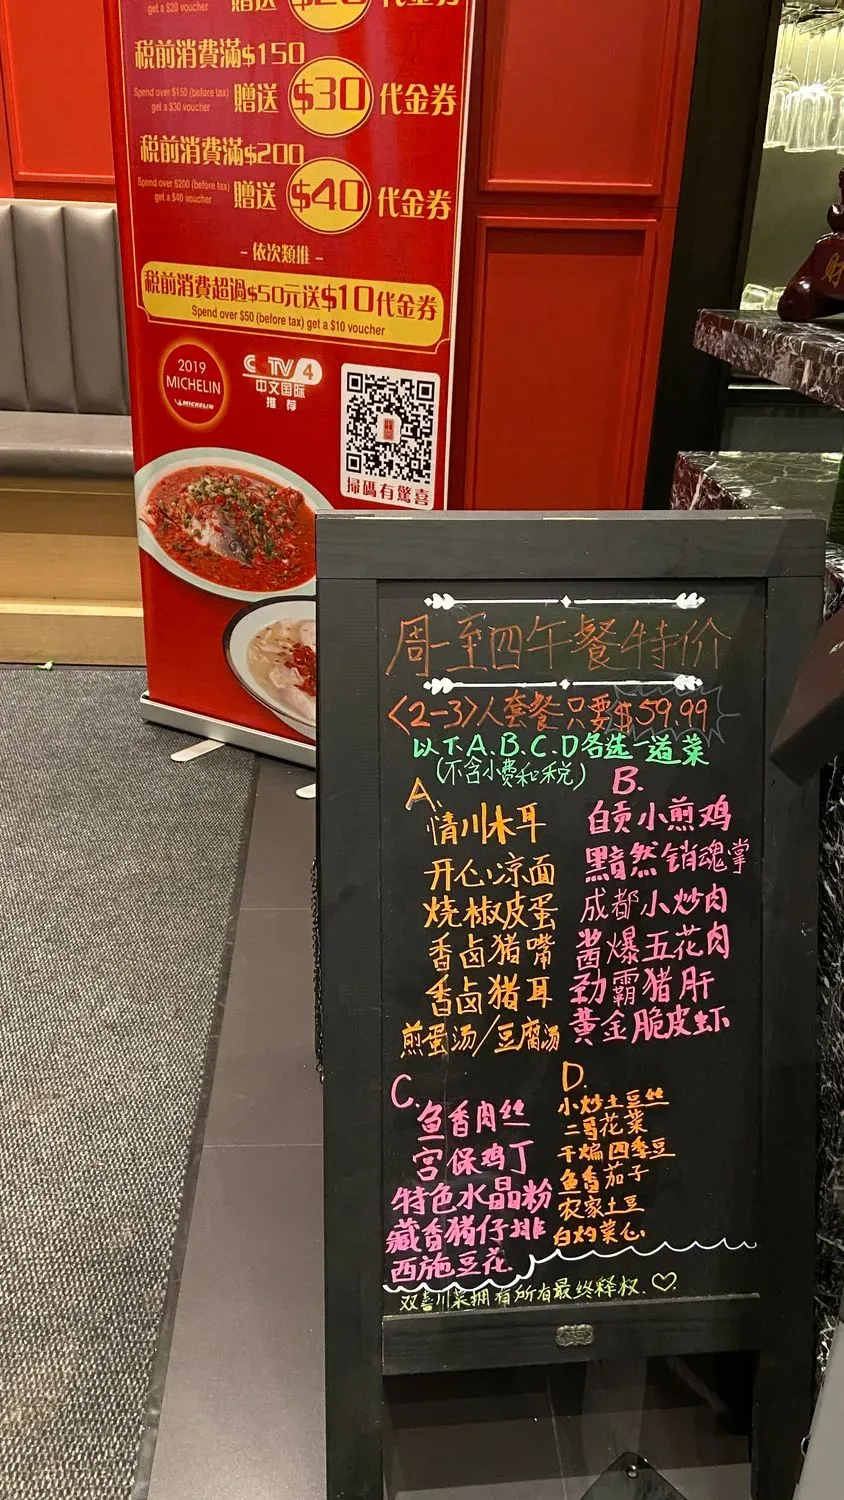 get a $20 voucher
贈送 $20 代金券
税前消費滿$150
Spend over $150 (before tax)
get a $30 voucher
贈送 $30 代金券
税前消費滿$200
Spend over $200 (before tax)
get a $40 voucher
贈送 $40 代金券
- 依次類推 -
税前消費超過$50元送$10代金券
Spend over $50 (before tax) get a $10 voucher
2019
MICHELIN
MICHELIN
CCTV 4
中文国际
推荐
掃碼有驚喜
财
周一至四午餐特价
<2-3>人套餐只要$59.99
以下A.B.C.D各选一道菜
(不含小费和税)
A.
情川木耳
开心凉面
烧椒皮蛋
香卤猪嘴
香卤猪耳
煎蛋汤/豆腐汤
B.
自贡小煎鸡
黯然销魂掌
成都小炒肉
酱爆五花肉
劲霸猪肝
黄金脆皮虾
C.
鱼香肉丝
宫保鸡丁
特色水晶粉
藏香猪仔排
西施豆花
D.
小炒土豆丝
二哥花菜
干煸四季豆
鱼香茄子
农家土豆
白灼菜心
双喜川菜拥有所有最终释权.